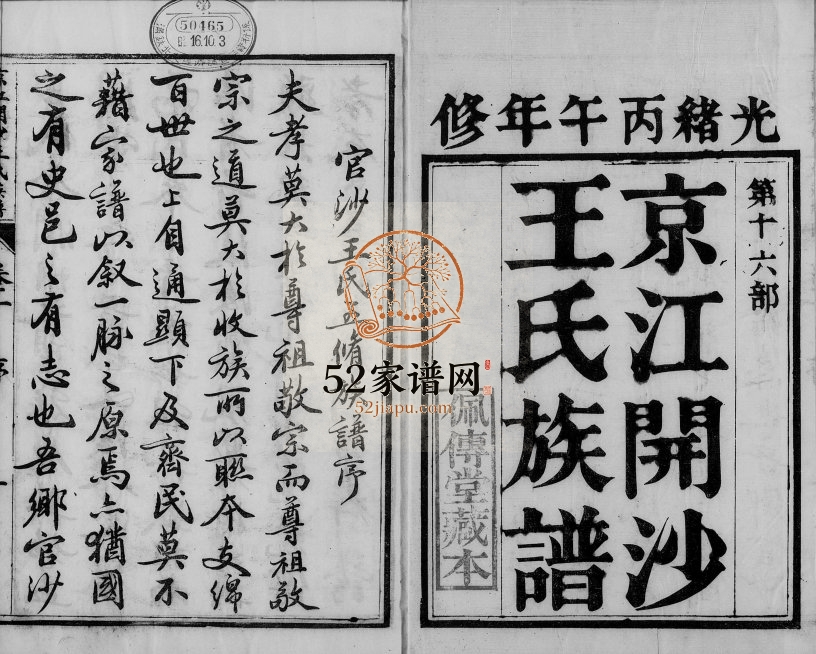 光緒丙午年修
第十六部
京江開沙
王氏族譜
佩傳堂藏本
52家谱网
52jiapu.com
50465
16.10.3
官沙王氏五脩族譜序
夫孝莫大於尊祖敬宗而尊祖敬
宗之道莫大於收族所以聯本支綿
百世也上自通顯下及齊民莫不
藉家譜以叙一脉之原焉亦猶國
之有史邑之有志也吾鄉官沙